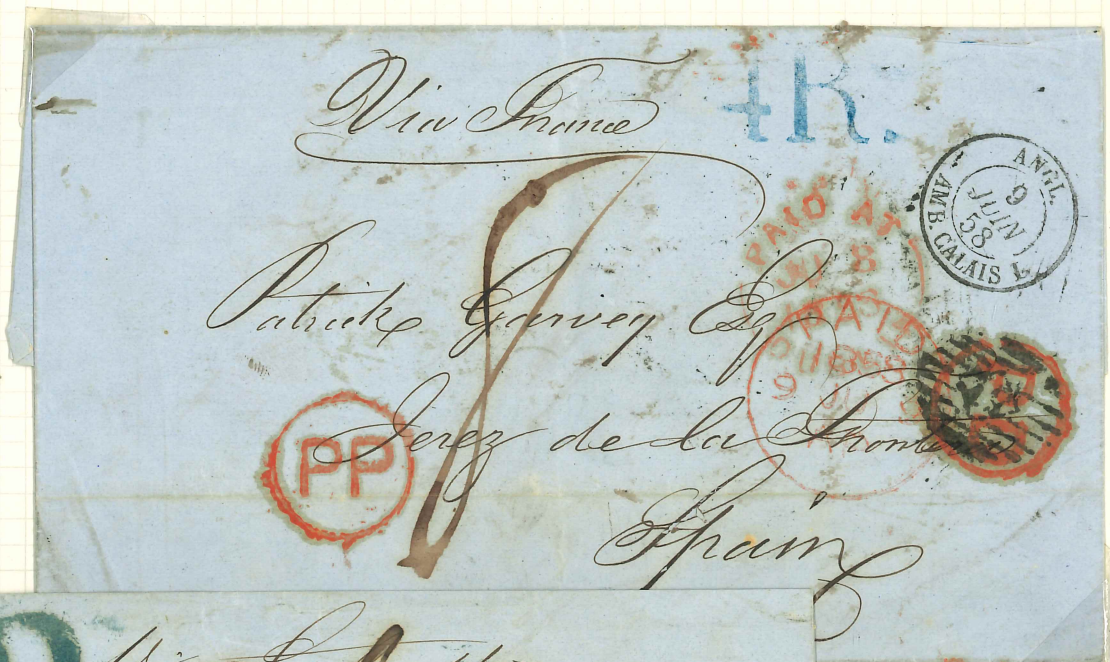 Via France
4R.
ANGL.
9
JUIN
58
AMB. CALAIS
PAID AT
8
Patrick Garvey Esq
PAID
9
PP
Jerez de la Frontera
Spain